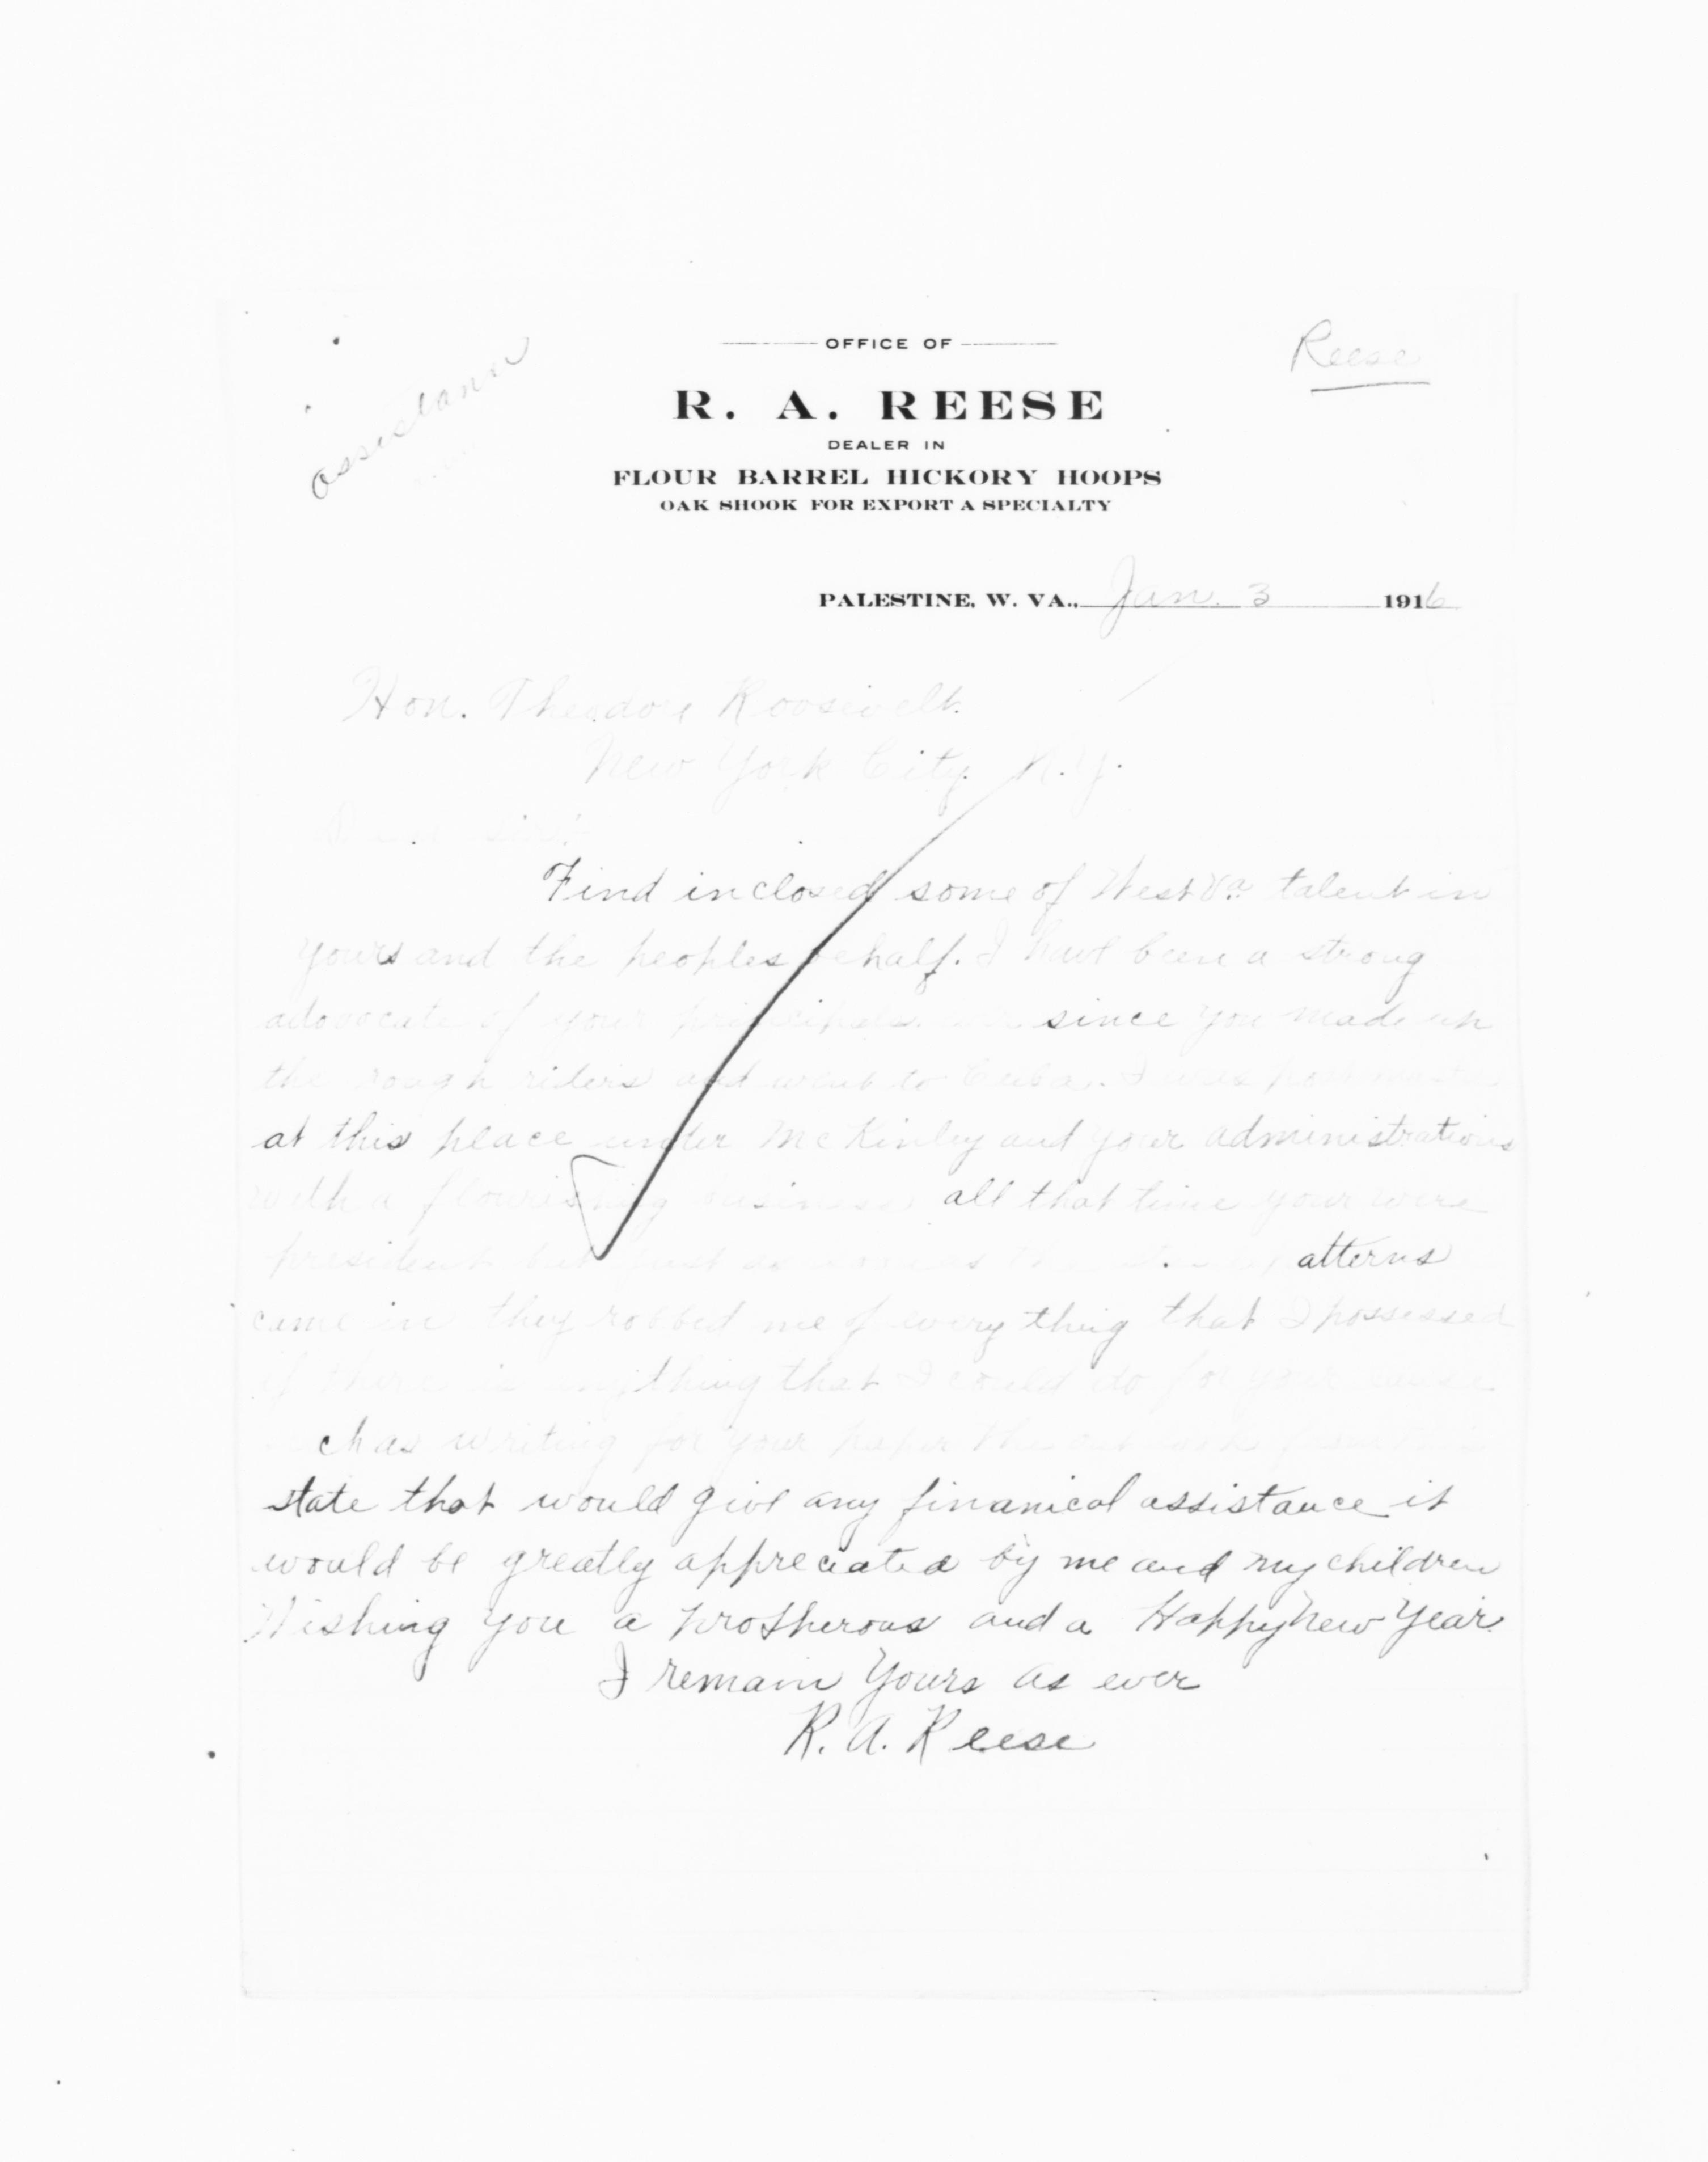 assistance
Reese
OFFICE OF
R. A. REESE
DEALER IN
FLOUR BARREL HICKORY HOOPS
OAK SHOOK FOR EXPORT A SPECIALTY
PALESTINE, W. VA., Jan. 3 1916
Hon. Theodore Roosevelt.
New York City N.Y.
Dear Sir:
Find inclosed some of West Va. talent in
yours and the peoples behalf. I have been a strong
adovocate of your principals ever since you made up
the rough riders and went to Cuba. I was postmaster
at this place under McKinley and your administrations
with a flourishing business all that time your were
president but just as soon as the atterns
came in they robbed me of every thing that I possessed
if there is anything that I could do for your cause
such as writing for your paper the out look from this
state that would give any finanical assistance it
would be greatly appreciated by me and my children
Wishing you a prosherous and a Happy New Year.
I remain Yours as ever
R. A. Reese